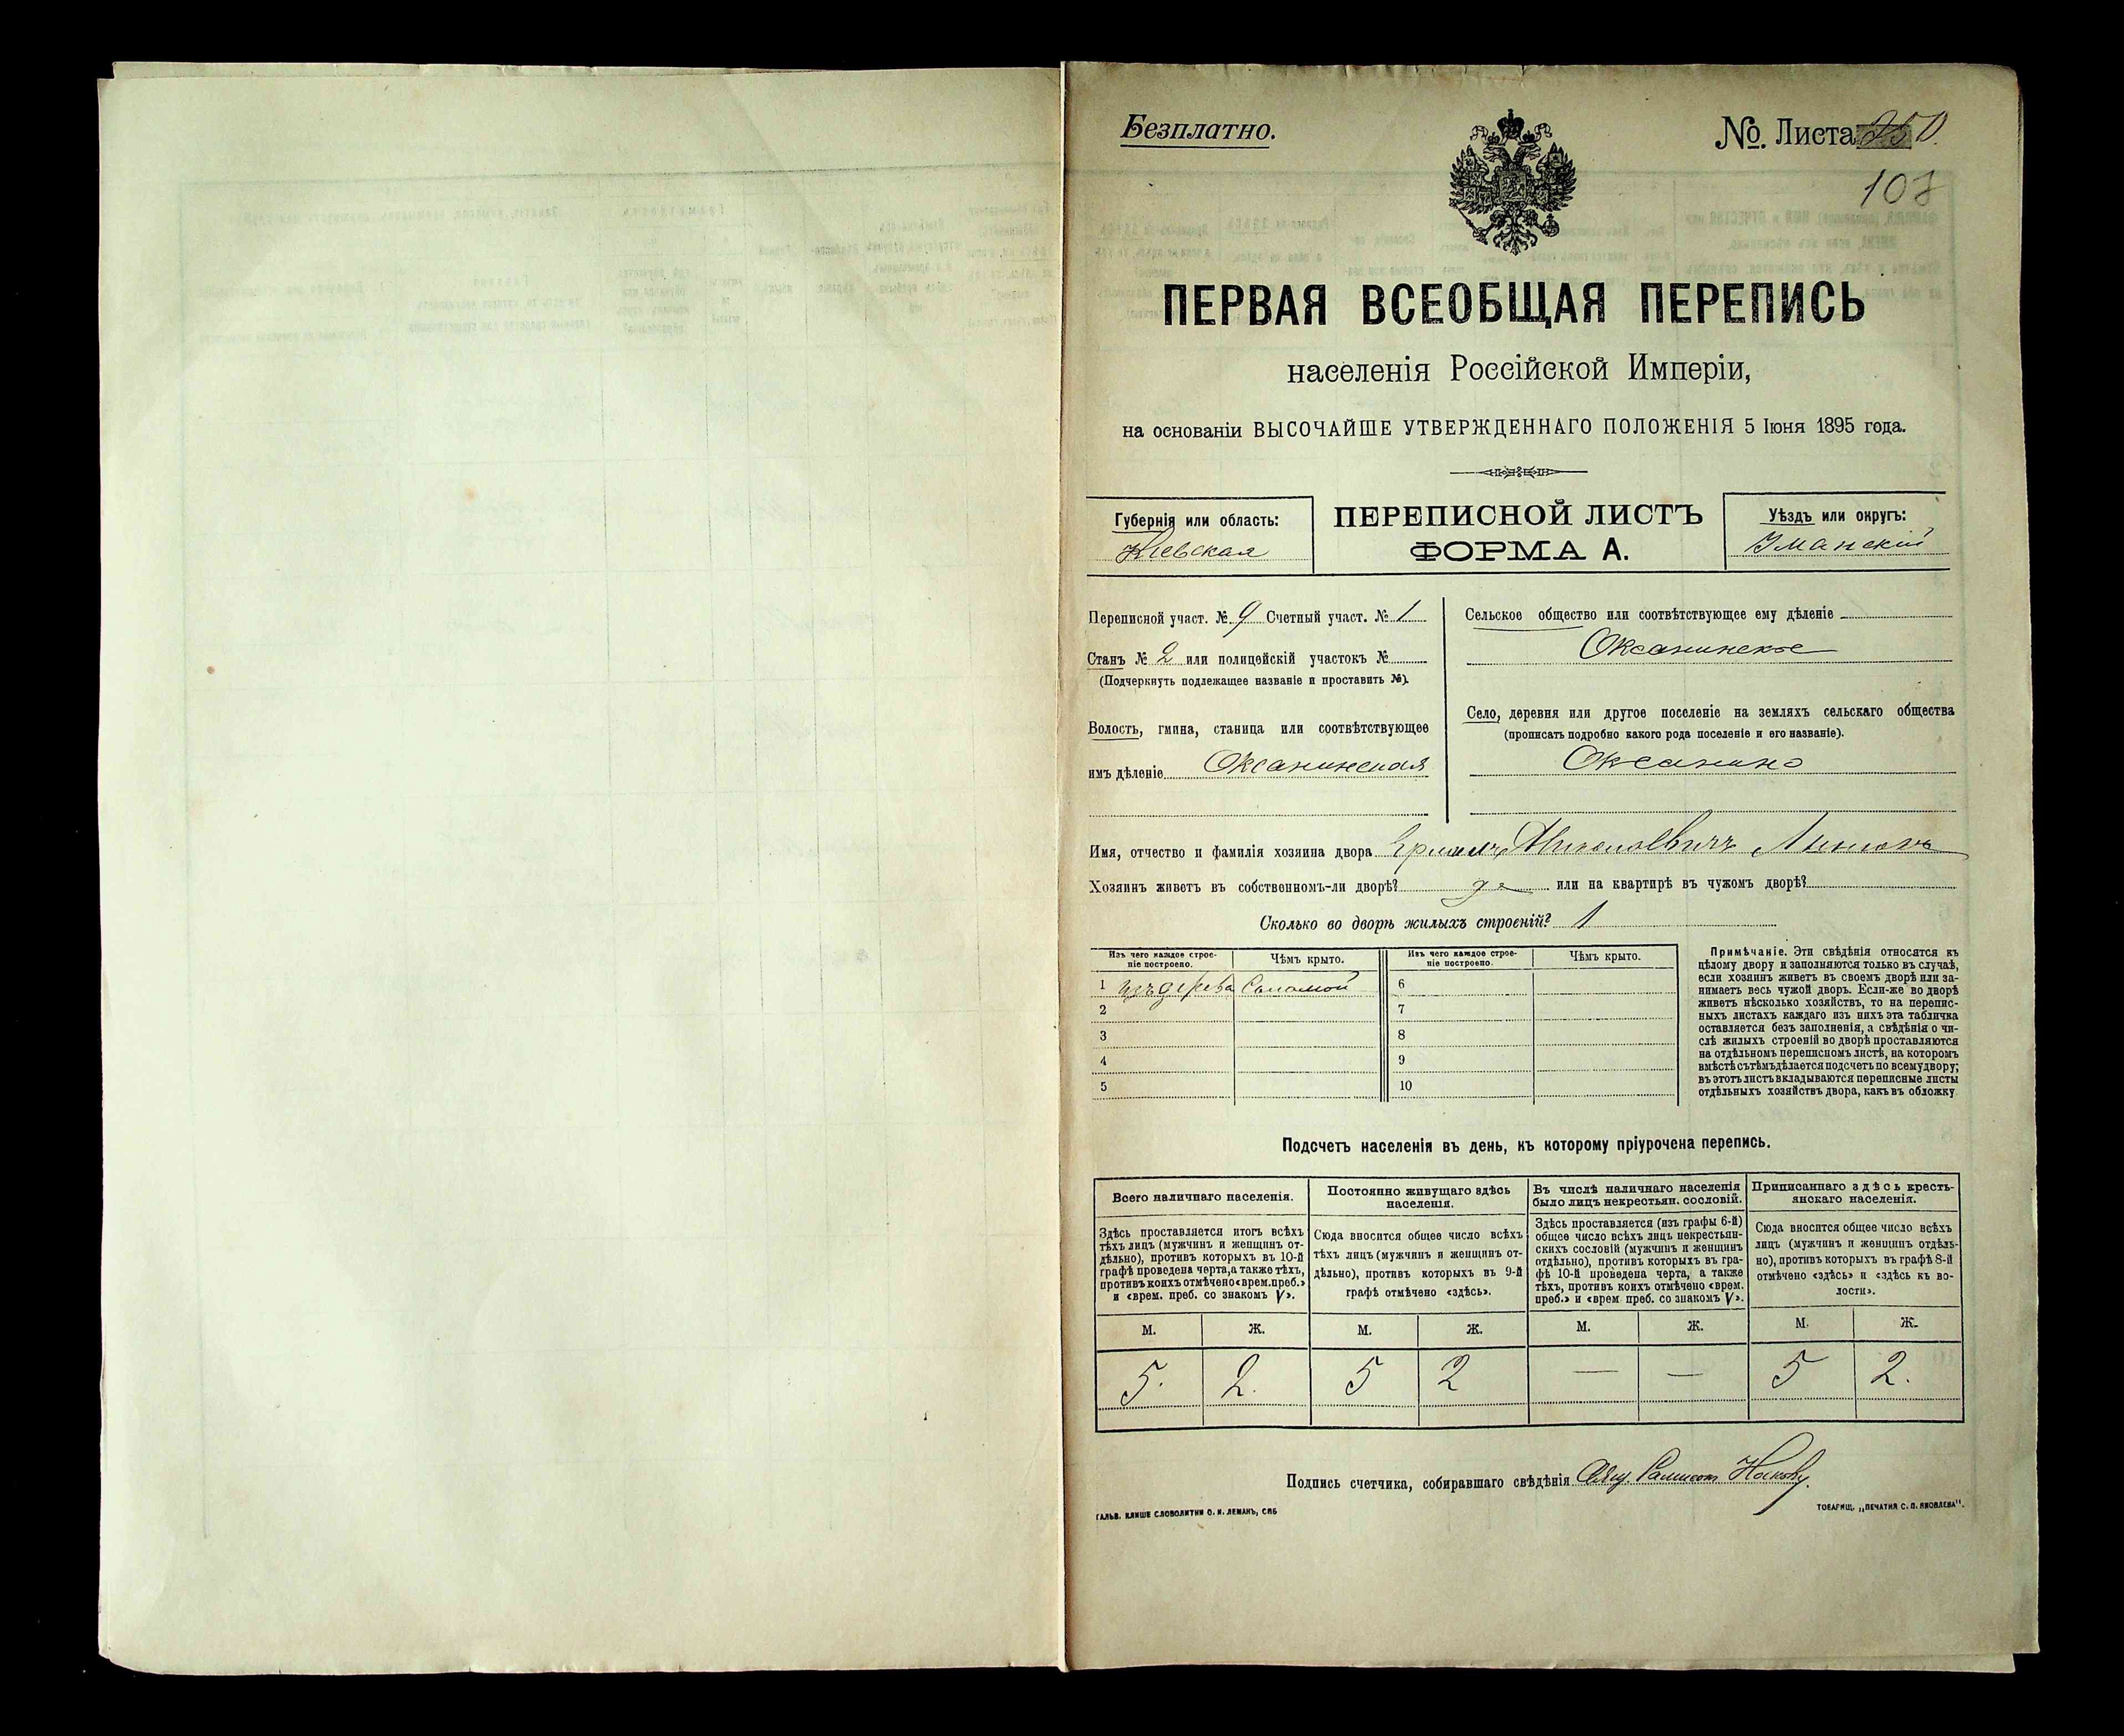 Безплатно.
№. Листа 250.
107
ПЕРВАЯ ВСЕОБЩАЯ ПЕРЕПИСЬ
населенія Россійской Имперіи,
на основаніи ВЫСОЧАЙШЕ УТВЕРЖДЕННАГО ПОЛОЖЕНІЯ 5 Іюня 1895 года.
Губернія или область:
Кіевская
ПЕРЕПИСНОЙ ЛИСТЪ
ФОРМА А.
Уѣздъ или округъ:
Уманскій
Переписной участ. № 9 Счетный участ. № 1
Станъ № 2 или полицейскій участокъ №
(Подчеркнуть подлежащее названіе и проставить №).
Волость, гмина, станица или соотвѣтствующее
имъ дѣленіе Оксанинская
Сельское общество или соотвѣтствующее ему дѣленіе
Оксанинское
Село, деревня или другое поселеніе на земляхъ сельскаго общества
(прописать подробно какого рода поселеніе и его названіе).
Оксанино
Имя, отчество и фамилія хозяина двора
Хозяинъ живетъ въ собственномъ-ли дворѣ? да или на квартирѣ въ чужомъ дворѣ?
Сколько во дворѣ жилыхъ строеній? 1
Изъ чего каждое строе-
ніе построено.
Чѣмъ крыто.
Изъ чего каждое строе-
ніе построено.
Чѣмъ крыто.
1 изъ дерева Соломой 6
2 7
3 8
4 9
5 10
Примѣчаніе. Эти свѣдѣнія относятся къ
цѣлому двору и заполняются только въ случаѣ,
если хозяинъ живетъ въ своемъ дворѣ или за-
нимаетъ весь чужой дворъ. Если-же во дворѣ
живетъ нѣсколько хозяйствъ, то на перепис-
ныхъ листахъ каждаго изъ нихъ эта табличка
оставляется безъ заполненія, а свѣдѣнія о чи-
слѣ жилыхъ строеній во дворѣ проставляются
на отдѣльномъ переписномъ листѣ, на которомъ
вмѣстѣ съ тѣмъ дѣлается подсчетъ по всему двору;
въ этотъ листъ вкладываются переписные листы
отдѣльныхъ хозяйствъ двора, какъ въ обложку
Подсчетъ населенія въ день, къ которому пріурочена перепись.
Всего наличнаго населенія.
Здѣсь проставляется итогъ всѣхъ
тѣхъ лицъ (мужчинъ и женщинъ от-
дѣльно), противъ которыхъ въ 10-й
графѣ проведена черта, а также тѣхъ,
противъ коихъ отмѣчено «врем. преб.»
и «врем. преб. со знакомъ V».
Постоянно живущаго здѣсь
населенія.
Сюда вносится общее число всѣхъ
тѣхъ лицъ (мужчинъ и женщинъ от-
дѣльно), противъ которыхъ въ 9-й
графѣ отмѣчено «здѣсь».
Въ числѣ наличнаго населенія
было лицъ некрестьян. сословій.
Здѣсь проставляется (изъ графы 6-й)
общее число всѣхъ лицъ некрестьян-
скихъ сословій (мужчинъ и женщинъ
отдѣльно), противъ которыхъ въ гра-
фѣ 10-й проведена черта, а также
тѣхъ, противъ коихъ отмѣчено «врем.
преб.» и «врем преб. со знакомъ V».
Приписаннаго здѣсь кресть-
янскаго населенія.
Сюда вносится общее число всѣхъ
лицъ (мужчинъ и женщинъ отдѣль-
но), противъ которыхъ въ графѣ 8-й
отмѣчено «здѣсь» и «здѣсь къ во-
лости».
М. Ж. М. Ж. М. Ж. М. Ж.
5. 2. 5 2 — — 5 2.
Подпись счетчика, собиравшаго свѣдѣнія
ГАЛЬВ. КЛИШЕ СЛОВОЛИТНИ О. И. ЛЕМАНЪ, СПБ
ТОВАРИЩ. „ПЕЧАТНЯ С. П. ЯКОВЛЕВА".